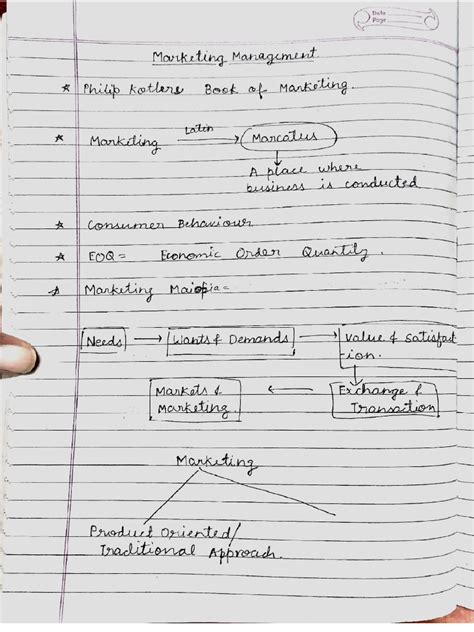 Date
Page
Marketing Management
* Philip Kotlers Book of Marketing.
* Marketing Latin → Marcatus
A place where
business is conducted
* Consumer Behaviour
* EOQ = Economic Order Quantity.
* Marketing Maiopia =
Needs → Wants & Demands → Value & Satisfact
-ion.
Markets & ← Exchange &
Marketing. Transaction
Marketing
Product Oriented/
Traditional Approach.